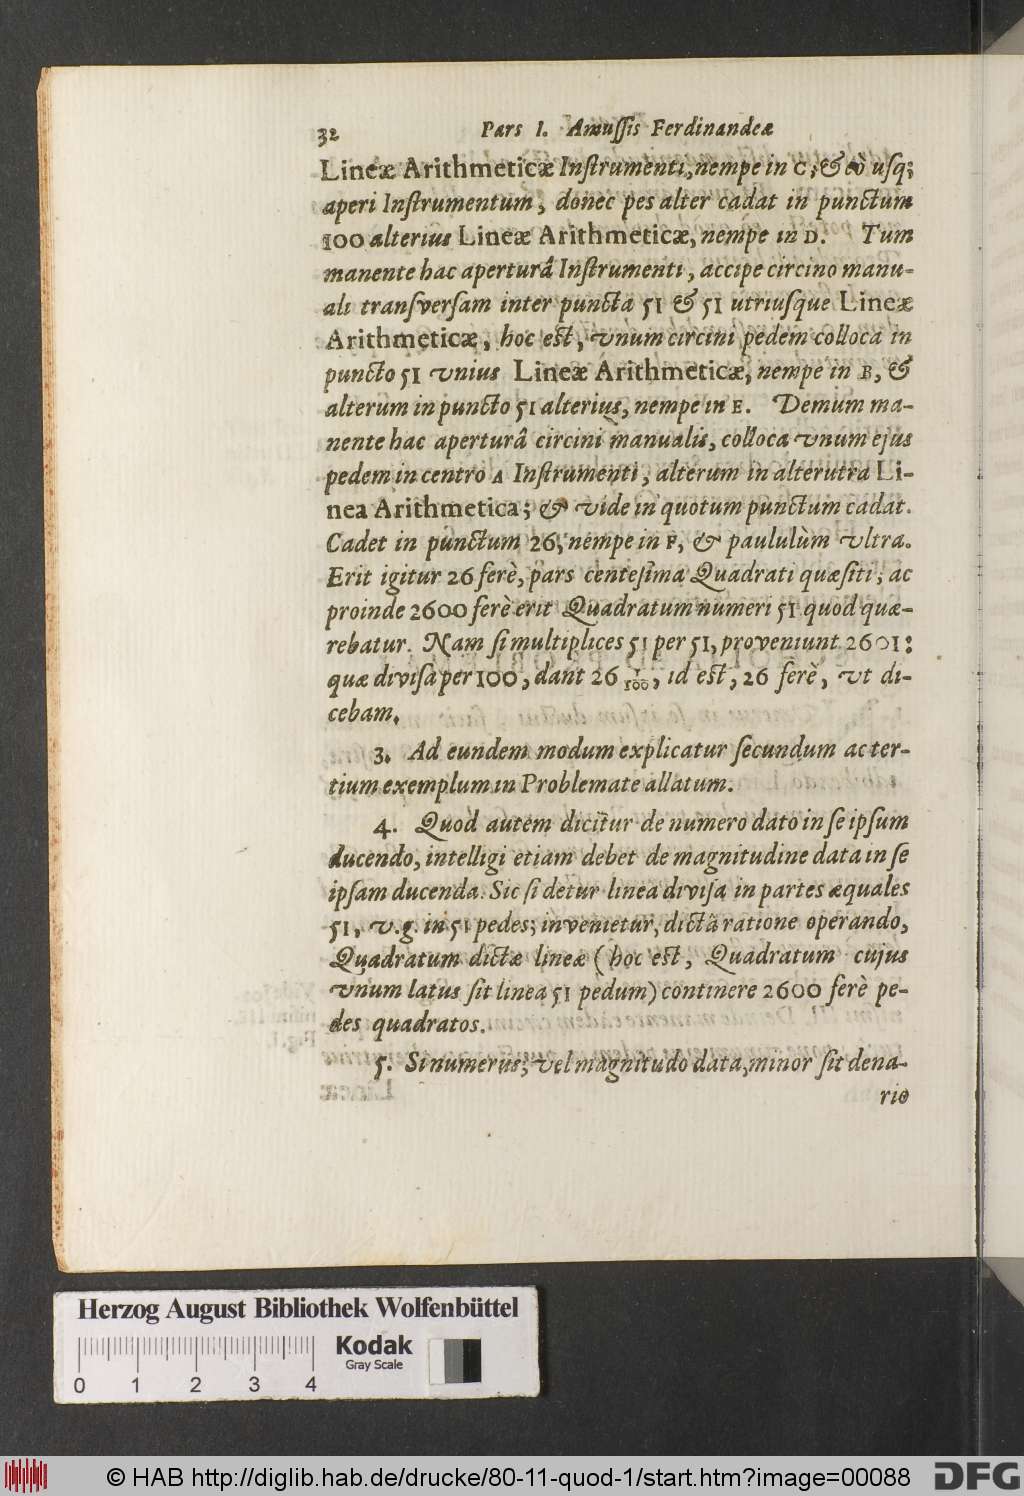 32 Pars I. Amuſſis Ferdinandeæ
Lineæ Arithmeticæ Inſtrumenti, nempe in C, & eò uſq;
aperi Inſtrumentum, donec pes alter cadat in punctum
100 alterius Lineæ Arithmeticæ, nempe in D. Tum
manente hac aperturâ Inſtrumenti, accipe circino manu-
ali transverſam inter puncta 51 & 51 utriuſque Lineæ
Arithmeticæ, hoc est, vnum circini pedem colloca in
puncto 51 vnius Lineæ Arithmeticæ, nempe in B, &
alterum in puncto 51 alterius, nempe in E. Demum ma-
nente hac aperturâ circini manualis, colloca vnum ejus
pedem in centro A Inſtrumenti, alterum in alterutra Li-
nea Arithmetica; & vide in quotum punctum cadat.
Cadet in punctum 26, nempe in F, & paululùm vltra.
Erit igitur 26 ferè, pars centeſima Quadrati quæſiti, ac
proinde 2600 ferè erit Quadratum numeri 51 quod quæ-
rebatur. Nam ſi multiplices 51 per 51, proveniunt 2601:
quæ diviſa per 100, dant 26 1/100, id est, 26 ferè, vt di-
cebam.
3. Ad eundem modum explicatur ſecundum ac ter-
tium exemplum in Problemate allatum.
4. Quod autem dicitur de numero dato in ſe ipſum
ducendo, intelligi etiam debet de magnitudine data in ſe
ipſam ducenda. Sic ſi detur linea diviſa in partes æquales
51, v.g. in 51 pedes; invenietur, dictâ ratione operando,
Quadratum dictæ lineæ (hoc est, Quadratum cujus
vnum latus ſit linea 51 pedum) continere 2600 ferè pe-
des quadratos.
5. Si numerus, vel magnitudo data, minor ſit dena-
rio
Herzog August Bibliothek Wolfenbüttel
Kodak
Gray Scale
0 1 2 3 4
© HAB http://diglib.hab.de/drucke/80-11-quod-1/start.htm?image=00088
DFG